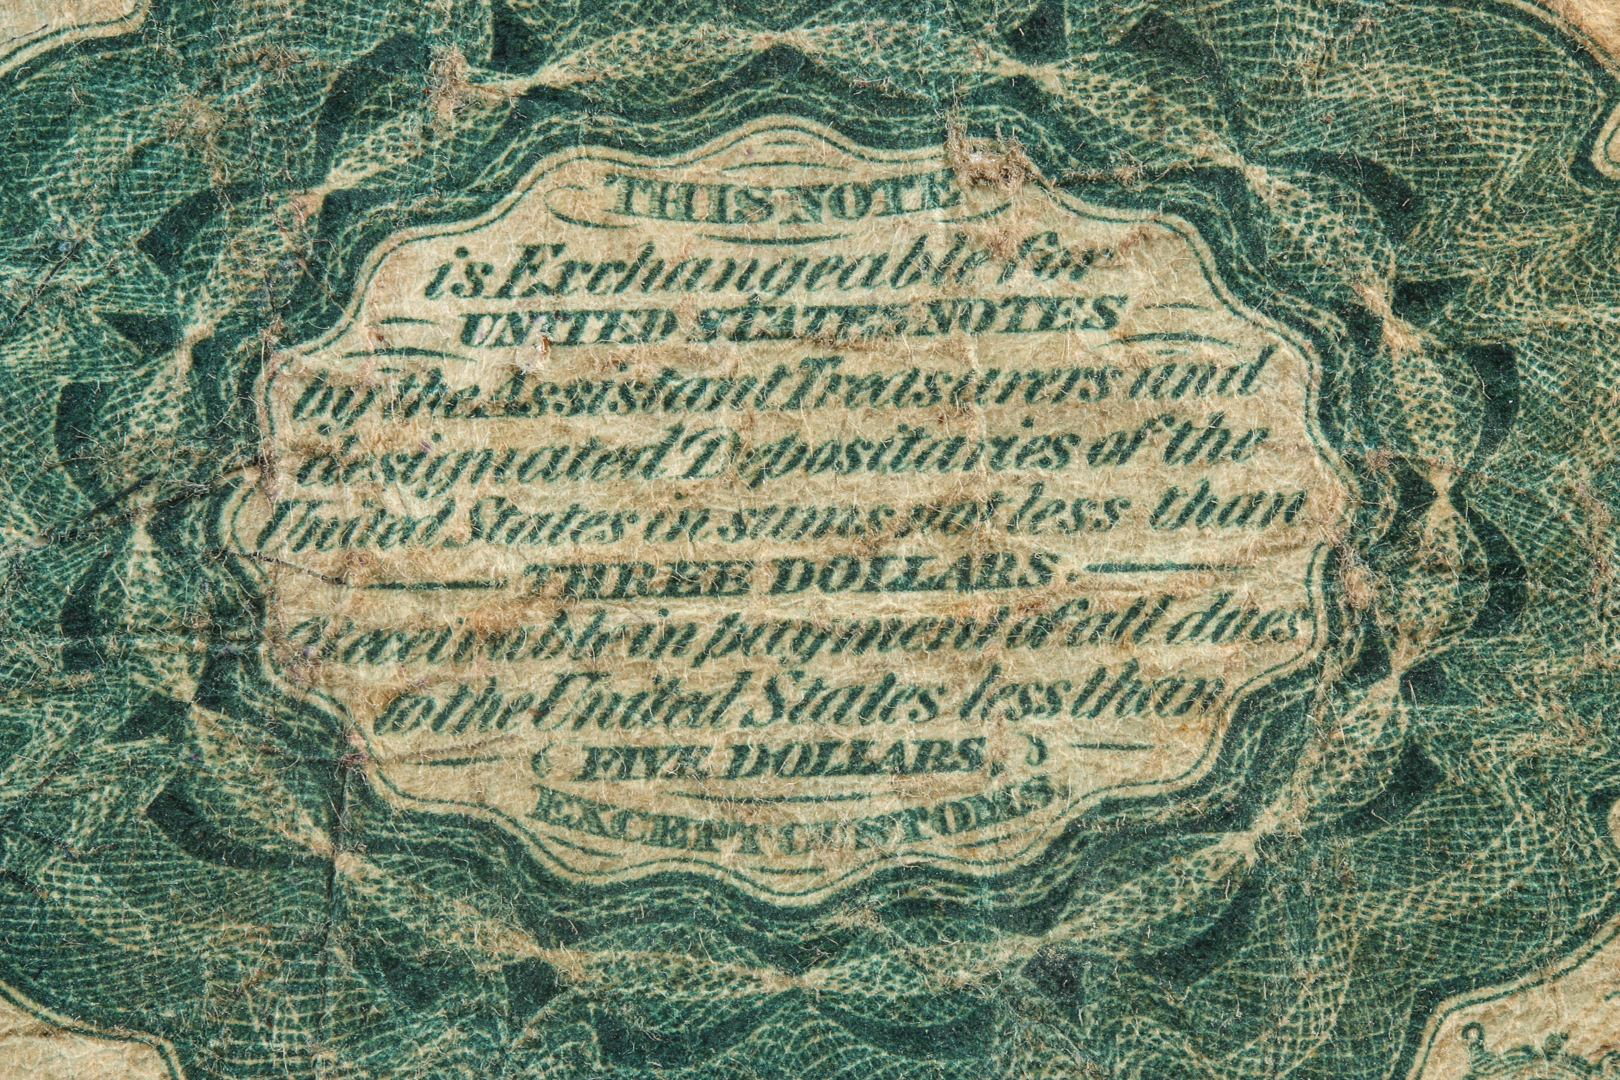 THIS NOTE
is Exchangeable for
UNITED STATES NOTES
by the Assistant Treasurers and
designated Depositaries of the
United States in sums not less than
THREE DOLLARS.
Receivable in payment of all dues
to the United States less than
FIVE DOLLARS
EXCEPT CUSTOMS